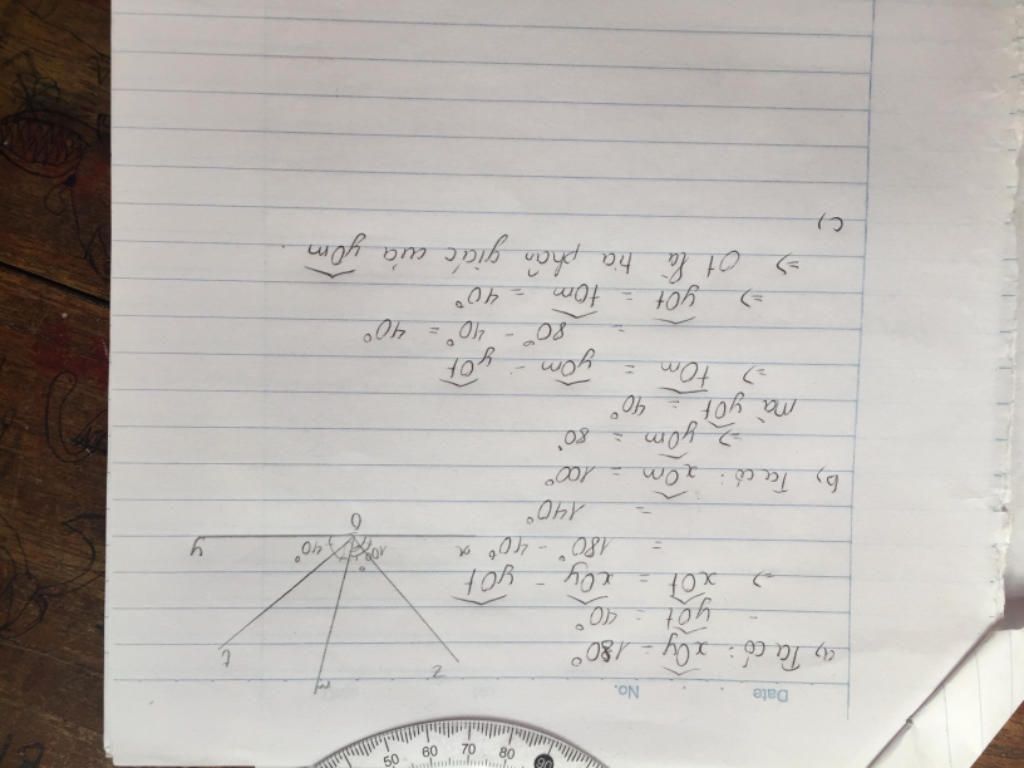 Date
No.
a, Ta có: xOy = 180°
- yOt = 40°
=> xOt = xOy - yOt
= 180° - 40°
= 140°
b, Ta có: xOm = 100°
=> yOm = 80°
mà yOt = 40°
=> tOm = yOm - yOt
= 80° - 40° = 40°
=> yOt = tOm = 40°
=> Ot là tia phân giác của yOm.
c,
z
m
t
100°
40°
x
O
y
50
60
70
80
90